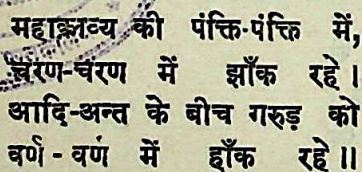 महाकाव्य की पंक्ति-पंक्ति में,
चरण-चरण में झाँक रहे।
आदि-अन्त के बीच गरुड़ को
वर्ण - वर्ण में हाँक रहे॥